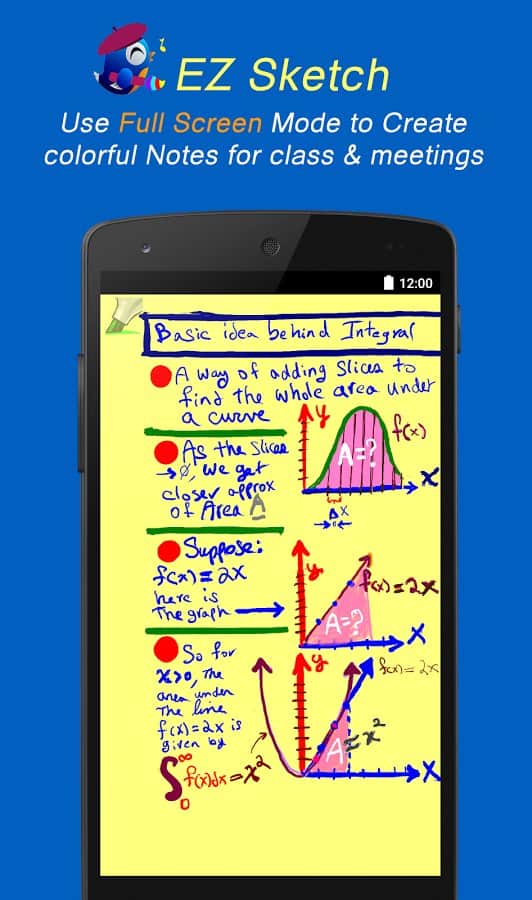 EZ Sketch
Use Full Screen Mode to Create
colorful Notes for class & meetings
12:00
Basic idea behind Integral
A way of adding Slices to
find the whole area under
a curve
y
f(x)
A=?
x
Δx
As the slices
→0, we get
closer approx
of Area A
Suppose:
f(x)=2x
here is
The graph
y
f(x)=2x
A=?
x
So for
x>0, The
area under
The line
f(x)=2x is
given by
∫ ∞ 0 f(x)dx=x²
y
f(x)=2x
A=x²
x